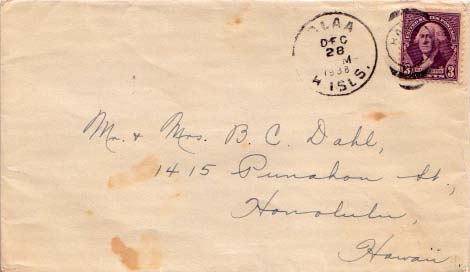 OLAA
DEC
28
M
1938
H ISLS.
3 3
Mr. & Mrs. B. C. Dahl,
1415 Punahou St.,
Honolulu,
Hawaii